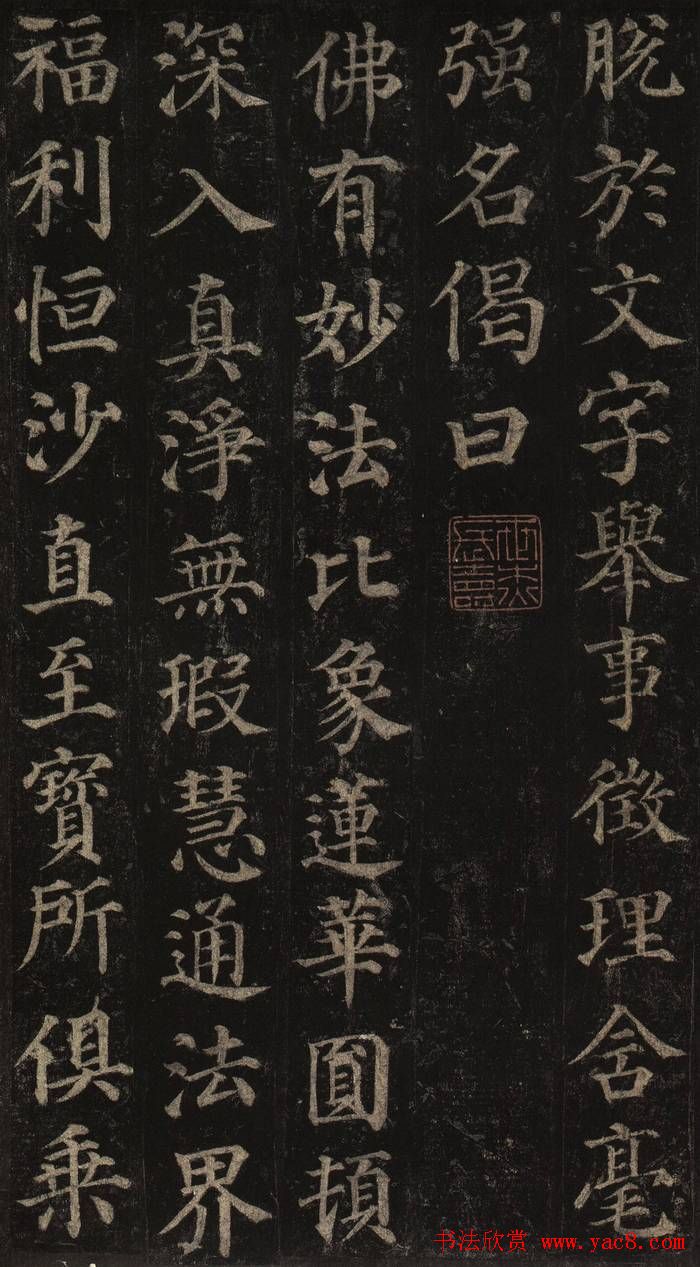 脱於文字舉事徵理含毫
强名偈曰
佛有妙法比象蓮華圓頓
深入真淨無瑕慧通法界
福利恒沙直至寶所俱乗
书法欣赏 www.yac8.com